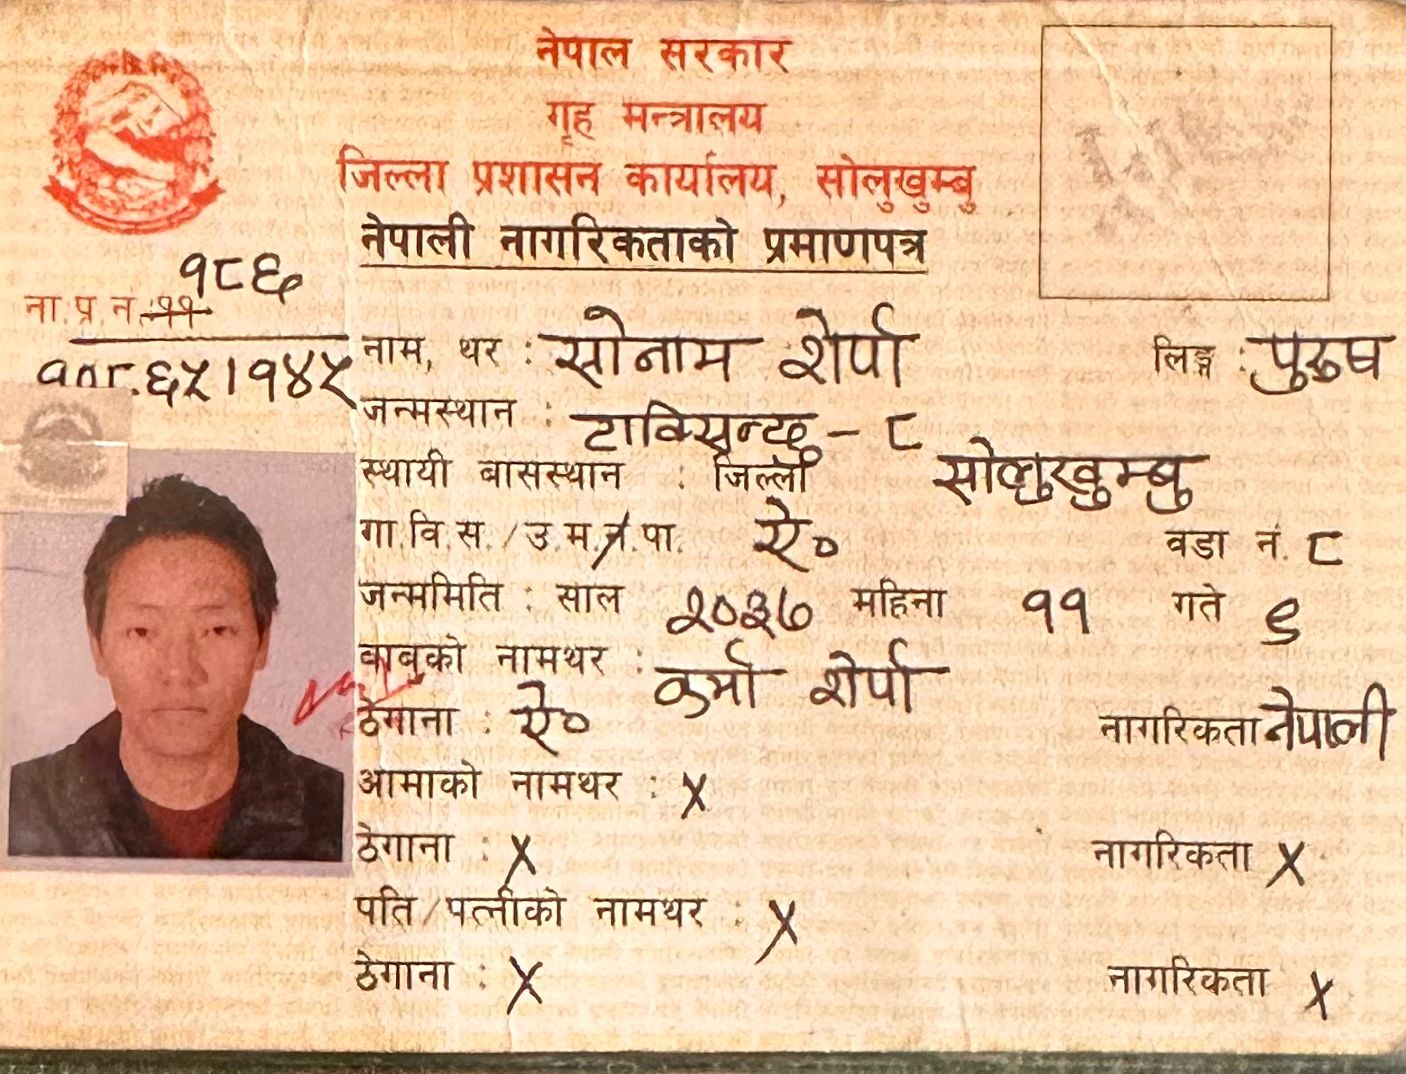 नेपाल सरकार
गृह मन्त्रालय
जिल्ला प्रशासन कार्यालय, सोलुखुम्बु
नेपाली नागरिकताको प्रमाणपत्र
१८६
ना.प्र.न.
नाम, थर : सोनाम शेर्पा लिङ्ग : पुरुष
जन्मस्थान : टाक्सिन्दु - ८
स्थायी बासस्थान : जिल्ला सोलुखुम्बु
गा.वि.स./उ.म.न.पा. ऐ० वडा नं. ८
जन्ममिति : साल २०३७ महिना ११ गते ९
बाबुको नामथर : कर्मा शेर्पा
ठेगाना : ऐ० नागरिकता नेपाली
आमाको नामथर : X
ठेगाना : X नागरिकता X
पति/पत्नीको नामथर : X
ठेगाना : X नागरिकता X